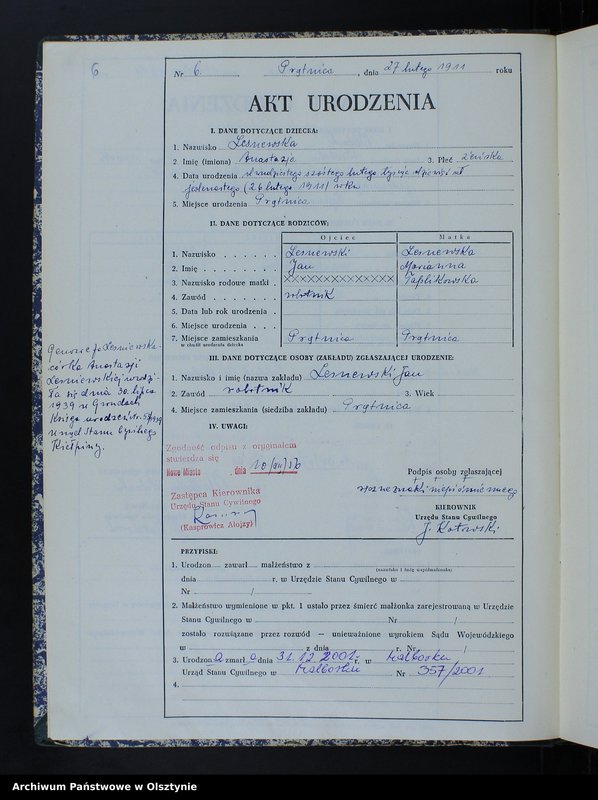 6
Nr 6. Prątnica, dnia 27 lutego 1911 roku
AKT URODZENIA
I. DANE DOTYCZĄCE DZIECKA:
1. Nazwisko Lesnewska
2. Imię (imiona) Anastazja 3. Płeć żeńska
4. Data urodzenia dwudziestego szóstego lutego tysiąc
jedenastego (26 lutego 1911) roku
5. Miejsce urodzenia Prątnica
II. DANE DOTYCZĄCE RODZICÓW:
Ojciec Matka
1. Nazwisko Lesnewski Lesnewska
2. Imię Jan Marianna
3. Nazwisko rodowe matki XXXXXXXXXXXX
4. Zawód robotnik
5. Data lub rok urodzenia
6. Miejsce urodzenia
7. Miejsce zamieszkania Prątnica Prątnica
w chwili urodzenia dziecka
III. DANE DOTYCZĄCE OSOBY (ZAKŁADU) ZGŁASZAJĄCEJ URODZENIE:
1. Nazwisko i imię (nazwa zakładu) Lesnewski Jan
2. Zawód robotnik 3. Wiek
4. Miejsce zamieszkania (siedziba zakładu) Prątnica
Lesniewska -
córka Anastazji
Lesniewskiej urodzi-
ła się dnia 30. lipca
1939 w Grondach
Księga urodzeń nr.
Urząd Stanu Cywilnego
Kiełpiny.
IV. UWAGI:
Zgodność odpisu z oryginałem
stwierdza się
Nowe Miasto, dnia
Zastępca Kierownika
Urzędu Stanu Cywilnego
(Kasprowicz Alojzy)
Podpis osoby zgłaszającej
+ + +
ręczne znaki niepiśmiennego
KIEROWNIK
Urzędu Stanu Cywilnego
J. Kotowski
PRZYPISKI:
1. Urodzon zawarł małżeństwo z
(nazwisko i imię współmałżonka)
dnia r. w Urzędzie Stanu Cywilnego w
Nr /
2. Małżeństwo wymienione w pkt. 1 ustało przez śmierć małżonka zarejestrowaną w Urzędzie
Stanu Cywilnego w Nr /
zostało rozwiązane przez rozwód — unieważnione wyrokiem Sądu Wojewódzkiego
w z dnia r. Nr /
3. Urodzona zmarła dnia 31.12.2001 r. w Malborku
Urząd Stanu Cywilnego w Malborku Nr 357/2001
4.
Archiwum Państwowe w Olsztynie